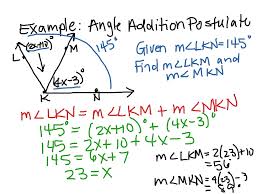 Example: Angle Addition Postulate
(2x+10)°
M
145°
L
(4x-3)°
K
N
Given m∠LKN=145°
Find m∠LKM and
m∠MKN
m∠LKN = m∠LKM + m∠MKN
145° = (2x+10)° + (4x-3)°
145 = 2x+10+4x-3
145 = 6x+7
23 = x
m∠LKM = 2(23)+10
= 56
m∠MKN = 4(23)-3
= 89